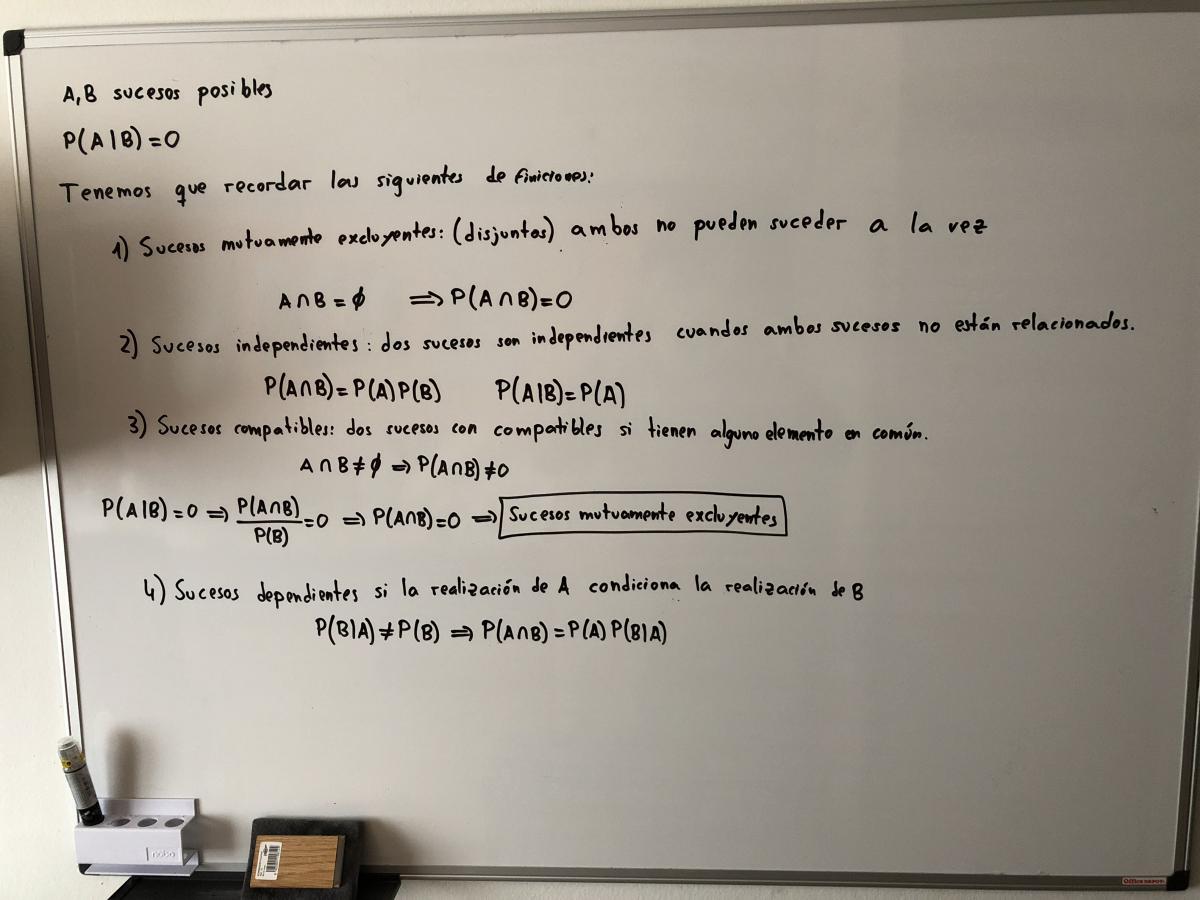 A,B sucesos posibles
P(A|B)=0
Tenemos que recordar las siguientes definiciones:
1) Sucesos mutuamente excluyentes: (disjuntos) ambos no pueden suceder a la vez
A∩B=∅ ⟹ P(A∩B)=0
2) Sucesos independientes: dos sucesos son independientes cuandos ambos sucesos no están relacionados.
P(A∩B)=P(A)P(B) P(A|B)=P(A)
3) Sucesos compatibles: dos sucesos con compatibles si tienen alguno elemento en común.
A∩B≠∅ ⟹ P(A∩B)≠0
P(A|B)=0 ⟹ P(A∩B)/P(B)=0 ⟹ P(A∩B)=0 ⟹ Sucesos mutuamente excluyentes
4) Sucesos dependientes si la realización de A condiciona la realización de B
P(B|A)≠P(B) ⟹ P(A∩B)=P(A)P(B|A)
nobo
Office DEPOT